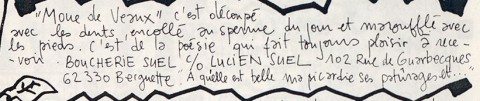 "Moue de Veaux" c'est découpé
avec les dents, encollé au sperme du jour et marouflé avec
les pieds. c'est de la poésie qui fait toujours plaisir à rece-
-voir. BOUCHERIE SUEL c/o LUCIEN SUEL 102 Rue de Guarbecques
62330 Berguette. A quelle est belle ma picardie ses pâturages et..."